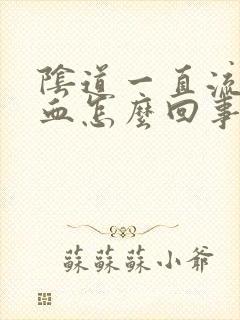 陰道一直流
血怎麼回事
蘇蘇蘇小爺